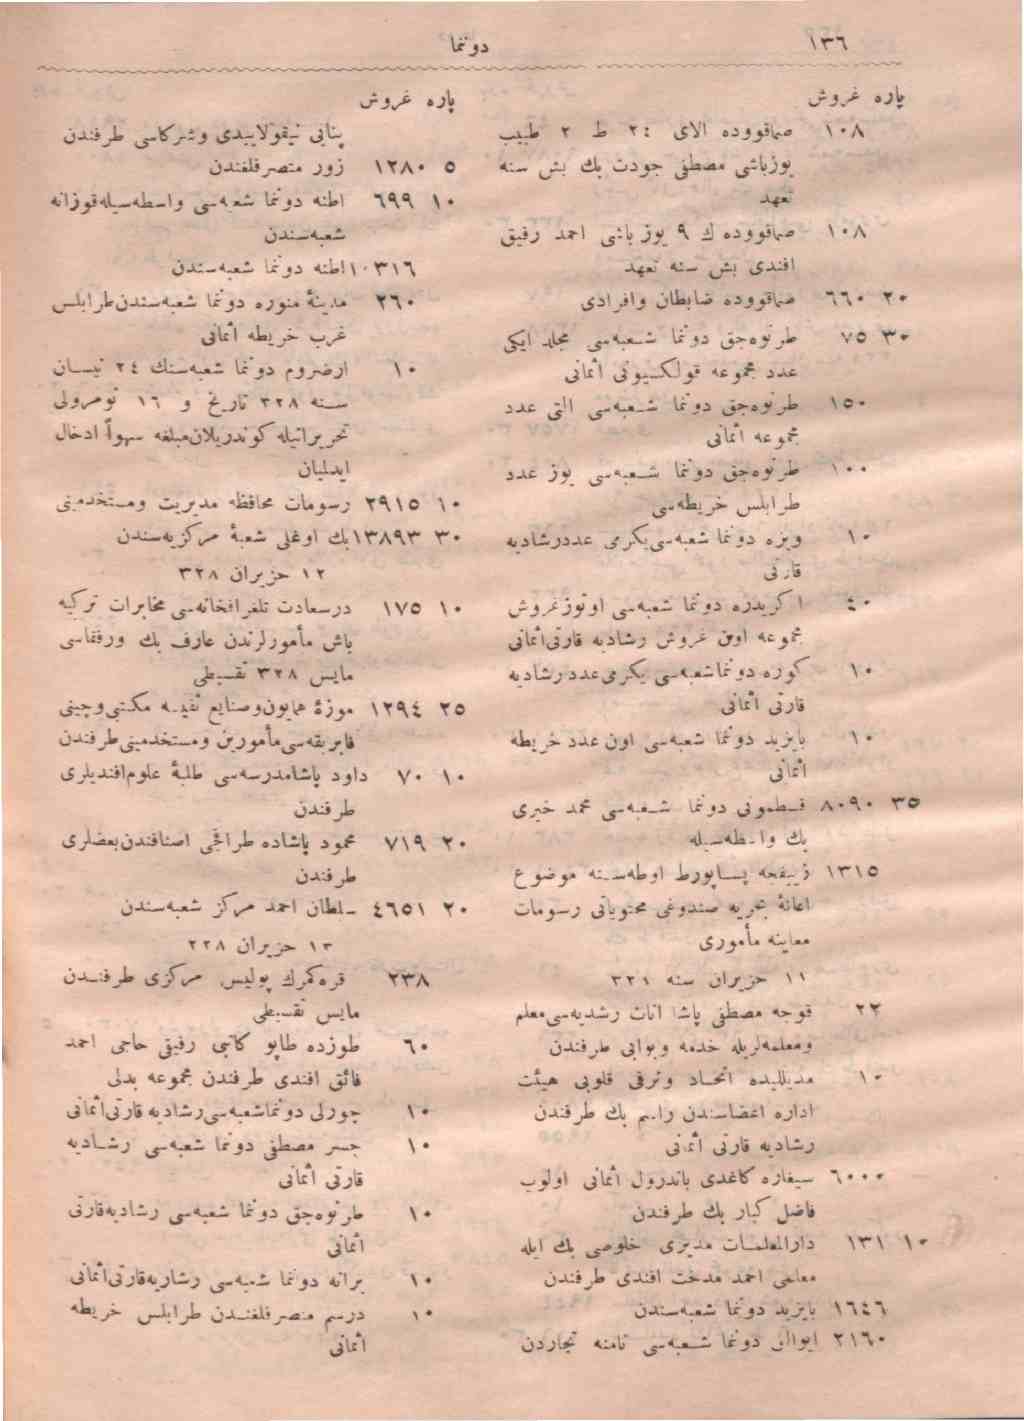 ١٣٦
دونما
پاره غروش
١٠٨ صماقووده الای ٢٤ ط ٢ طبیب
یوزباشی مصطفی جودت بك بش سنه
تعهد
١٠٨ صماقووده ك ٩ یوزباشی احمد رفیق
افندی بش سنه تعهد
٢٠ ٦٦٠ صماقووده ضابطان وافرادی
٣٠ ٧٥ طرنوه‌جق دونما شعبه‌سی مجلد ایکی
عدد مجموعه قولکسیونی اثمانی
١٥٠ طرنوه‌جق دونما شعبه‌سی التی عدد
مجموعه اثمانی
١٠٠ طرنوه‌جق دونما شعبه‌سی یوز عدد
طرابلس خریطه‌سی
١٠ ویزه دونما شعبه‌سی یکرمی عدد رشادیه
قارتی
٤٠ اکریدره دونما شعبه‌سی اوتوز غروش
مجموعه اون غروش رشادیه قارتی اثمانی
١٠ کوره دونما شعبه‌سی یکرمی عدد رشادیه
قارتی اثمانی
١٠ بایزید دونما شعبه‌سی اون عدد خریطه
اثمانی
٣٥ ٨٠٩٠ قسطمونی دونما شعبه‌سی محمد خیری
بك واسطه‌سیله
١٣١٥ پساپورط اوطه‌سنه موضوع
اعانهٔ بحریه صندوغی محتویاتی رسومات
معاینه مأموری
١١ حزیران سنه ٣٢١
٢٢ قوجه مصطفی پاشا اناث رشدیه‌سی معلم
ومعلمه‌لریله خدمه وبوابی طرفندن
١٠ مدیللیده اتحاد وترقی قلوبی هیئت
اداره اعضاسندن راسم بك طرفندن
رشادیه قارتی اثمانی
٦٠٠٠ سیغاره کاغدی باندرول اثمانی اولوب
فاضل کبار بك طرفندن
١٠ ١٣١ دارالمعلمات مدیری خلوصی بك ایله
معلمی احمد مدحت افندی طرفندن
١٦٤٦ بایزید دونما شعبه‌سندن
٢١٦٠ ایوالق دونما شعبه‌سی نامنه تجاردن
پاره غروش
پنایی نیقولاییدی وشرکاسی طرفندن
٥ ١٢٨٠ زور متصرفلغندن
١٠ ٦٩٩ اطنه دونما شعبه‌سی واسطه‌سیله قوزانه
شعبه‌سندن
١٠٣١٦ اطنه دونما شعبه‌سندن
٢٦٠ مدینهٔ منوره دونما شعبه‌سندن طرابلس
غرب خریطه اثمانی
١٠ ارضروم دونما شعبه‌سنك ٢٤ نیسان
سنه ٣٢٨ تاریخ و ١٦ نومرولی
تحریراتیله کوندریلان مبلغه سهواً ادخال
ایدلیان
١٠ ٢٩١٥ رسومات محافظه مدیریت ومستخدمینی
٣٠ ١٣٨٩٣ بك اوغلی شعبهٔ مرکزیه‌سندن
١٢ حزیران ٣٢٨
١٠ ١٧٥ درسعادت تلغرافخانه‌سی مخابرات ترکیه
باش مأمورلرندن عارف بك ورفقاسی
مایس ٣٢٨ تقسیطی
٢٥ ١٢٩٤ موزهٔ همایون وصنایع نفیسه مکتبی وچینی
فابریقه‌سی مأمورین ومستخدمینی طرفندن
١٠ ٧٠ داود پاشا مدرسه‌سی طلبهٔ علوم افندیلری
طرفندن
٢٠ ٧١٩ محمود پاشاده طراقجی اصنافندن بعضلری
طرفندن
٢٠ ٤٦٥١ سلطان احمد مرکز شعبه‌سندن
١٣ حزیران ٢٢٨
٢٣٨ قره‌کمرك پولیس مرکزی طرفندن
مایس تقسیطی
٦٠ طوزده طاپو کاتبی رفیقی حاجی احمد
فائق افندی طرفندن مجموعه بدلی
١٠ چورلی دونما شعبه‌سی رشادیه قارتی اثمانی
١٠ جسر مصطفی دونما شعبه‌سی رشادیه
قارتی اثمانی
١٠ طرنوه‌جق دونما شعبه‌سی رشادیه قارتی
اثمانی
١٠ برانه دونما شعبه‌سی رشاریه قارتی اثمانی
١٠ درسم متصرفلغندن طرابلس خریطه
اثمانی